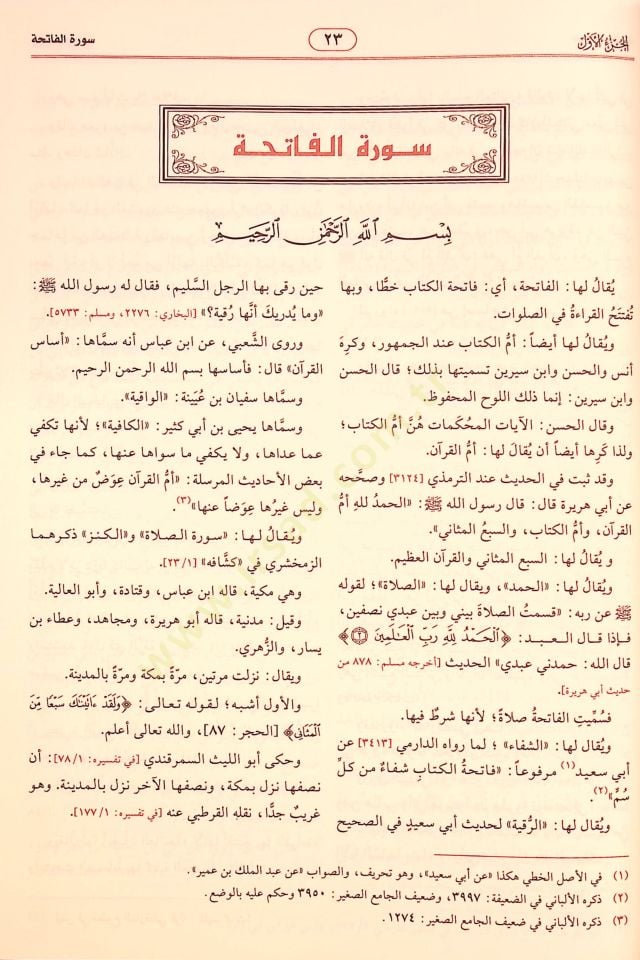 الجزء الأول
٢٣
سورة الفاتحة
سورة الفاتحة
بِسْمِ اللَّهِ الرَّحْمَٰنِ الرَّحِيمِ
يُقالُ لها: الفاتحة، أي: فاتحة الكتاب خطًّا، وبها
تُفتتَحُ القراءةُ في الصلوات.
ويُقالُ لها أيضاً: أمُّ الكتاب عند الجمهور، وكرِهَ
أنس والحسن وابن سيرين تسميتها بذلك؛ قال الحسن
وابن سيرين: إنما ذلك اللوح المحفوظ.
وقال الحسن: الآيات المُحكَمات هُنَّ أمُّ الكتاب؛
ولذا كرِها أيضاً أن يُقالَ لها: أمُّ القرآن.
وقد ثبت في الحديث عند الترمذي [٣١٢٤] وصحَّحه
عن أبي هريرة قال: قال رسول الله ﷺ: «الحمدُ للهِ أمُّ
القرآن، وأم الكتاب، والسبعُ المثاني».
و يُقالُ لها: السبع المثاني والقرآن العظيم.
ويُقالُ لها: «الحمد»، ويقال لها: «الصلاة»؛ لقوله
ﷺ عن ربه: «قسمتُ الصلاةَ بيني وبين عبدي نصفين،
فإذا قال العبد: ﴿الْحَمْدُ لِلَّهِ رَبِّ الْعَالَمِينَ ٢﴾
قال الله: حمدني عبدي» الحديث [أخرجه مسلم: ٨٧٨ من
حديث أبي هريرة].
فسُمِّيتِ الفاتحةُ صلاةً؛ لأنها شرطٌ فيها.
ويُقالُ لها: «الشفاء» ؛ لما رواه الدارمي [٣٤١٣] عن
أبي سعيد(١) مرفوعاً: «فاتحةُ الكتابِ شفاءٌ من كلِّ
سُمٍّ»(٢).
ويُقالُ لها: «الرقية» لحديث أبي سعيدٍ في الصحيح
حين رقى بها الرجل السَّليم، فقال له رسول الله ﷺ:
«وما يُدريكَ أنَّها رُقية؟» [البخاري: ٢٢٧٦، ومسلم: ٥٧٣٣].
وروى الشَّعبي، عن ابن عباس أنه سمَّاها: «أساس
القرآن» قال: فأساسها بسم الله الرحمن الرحيم.
وسمَّاها سفيان بن عُيَينة: «الواقية».
وسمَّاها يحيى بن أبي كثير: «الكافية»؛ لأنها تكفي
عما عداها، ولا يكفي ما سواها عنها، كما جاء في
بعض الأحاديث المرسلة: «أمُّ القرآن عِوَضٌ من غيرها،
وليس غيرُها عِوَضاً عنها»(٣).
ويُقالُ لها: «سورة الصلاة» و«الكنز» ذكرهما
الزمخشري في «كشَّافه» [٢٣/١].
وهي مكية، قاله ابن عباس، وقتادة، وأبو العالية.
وقيل: مدنية، قاله أبو هريرة، ومجاهد، وعطاء بن
يسار، والزُّهري.
ويقال: نزلت مرتين، مرَّةً بمكة ومرةً بالمدينة.
والأول أشبه؛ لقوله تعالى: ﴿وَلَقَدْ ءَاتَيْنَٰكَ سَبْعًا مِّنَ
الْمَثَانِي﴾ [الحجر: ٨٧]، والله تعالى أعلم.
وحكى أبو الليث السمرقندي [في تفسيره: ٧٨/١]: أن
نصفها نزل بمكة، ونصفها الآخر نزل بالمدينة. وهو
غريبٌ جدًّا، نقله القرطبي عنه [في تفسيره: ١٧٧/١].
(١) في الأصل الخطي هكذا «عن أبي سعيد»، وهو تحريف، والصواب «عن عبد الملك بن عمير».
(٢) ذكره الألباني في الضعيفة: ٣٩٩٧، وضعيف الجامع الصغير: ٣٩٥٠ وحكم عليه بالوضع.
(٣) ذكره الألباني في ضعيف الجامع الصغير: ١٢٧٤.